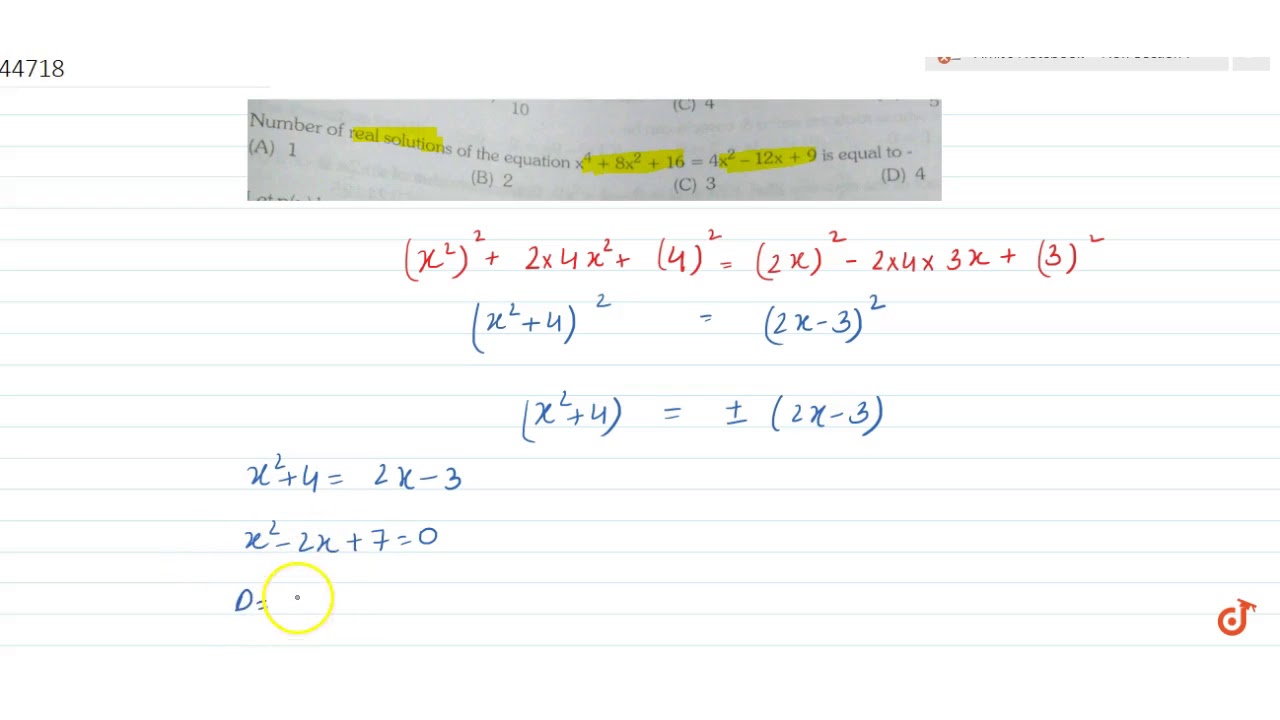 44718
10 (C) 4 5
Number of real solutions of the equation x⁴ + 8x² + 16 = 4x² − 12x + 9 is equal to -
(A) 1 (B) 2 (C) 3 (D) 4
(x²)² + 2×4x² + (4)² = (2x)² - 2×4×3x + (3)²
(x²+4)² = (2x-3)²
(x²+4) = ± (2x-3)
x²+4 = 2x-3
x²-2x+7=0
D=